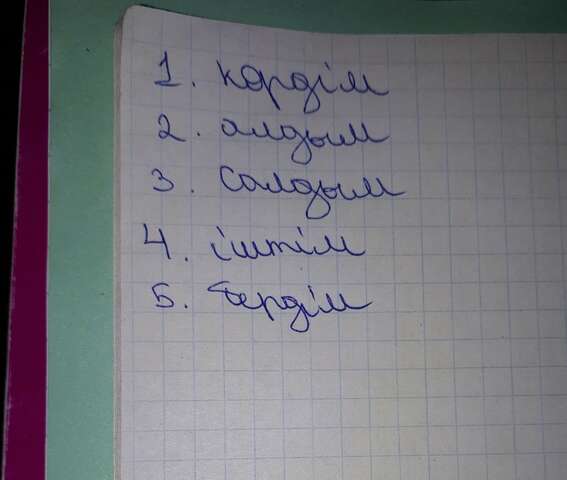 1. көрдім
2. алдым
3. салдым
4. іштім
5. бердім